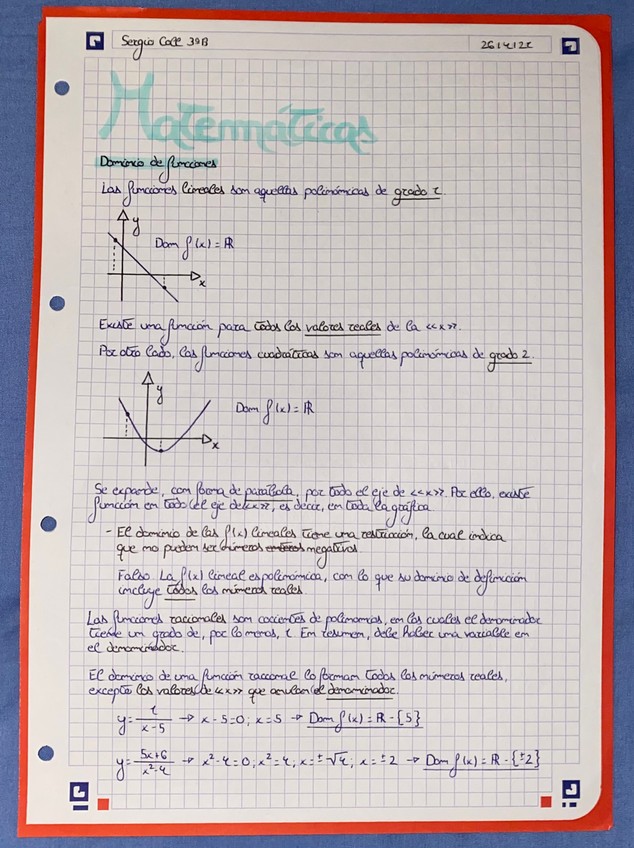 Sergio Coll 3ºB
26/4/21
Matemáticas
Dominio de funciones
Las funciones lineales son aquellas polinómicas de grado 1.
y
Dom f(x) = ℝ
x
Existe una función para todos los valores reales de la <<x>>.
Por otro lado, las funciones cuadráticas son aquellas polinómicas de grado 2.
y
Dom f(x) = ℝ
x
Se expande, con forma de parábola, por todo el eje de <<x>>. Por ello, existe
función en todo el eje de <<x>>, es decir, en toda la gráfica
- El dominio de las f(x) lineales tiene una restricción, la cual indica
que no pueden ser números enteros negativos.
Falso. La f(x) lineal es polinómica, con lo que su dominio de definición
incluye todos los números reales
Las funciones racionales son cocientes de polinomios, en los cuales el denominador
tiene un grado de, por lo menos, 1. En resumen, debe haber una variable en
el denominador.
El dominio de una función racional lo forman todos los números reales,
excepto los valores de <<x>> que anulan el denominador.
y = 1/(x-5) → x-5=0; x=5 → Dom f(x) = ℝ - {5}
y = (5x+6)/(x²-4) → x²-4=0; x²=4; x=±√4; x=±2 → Dom f(x) = ℝ - {±2}